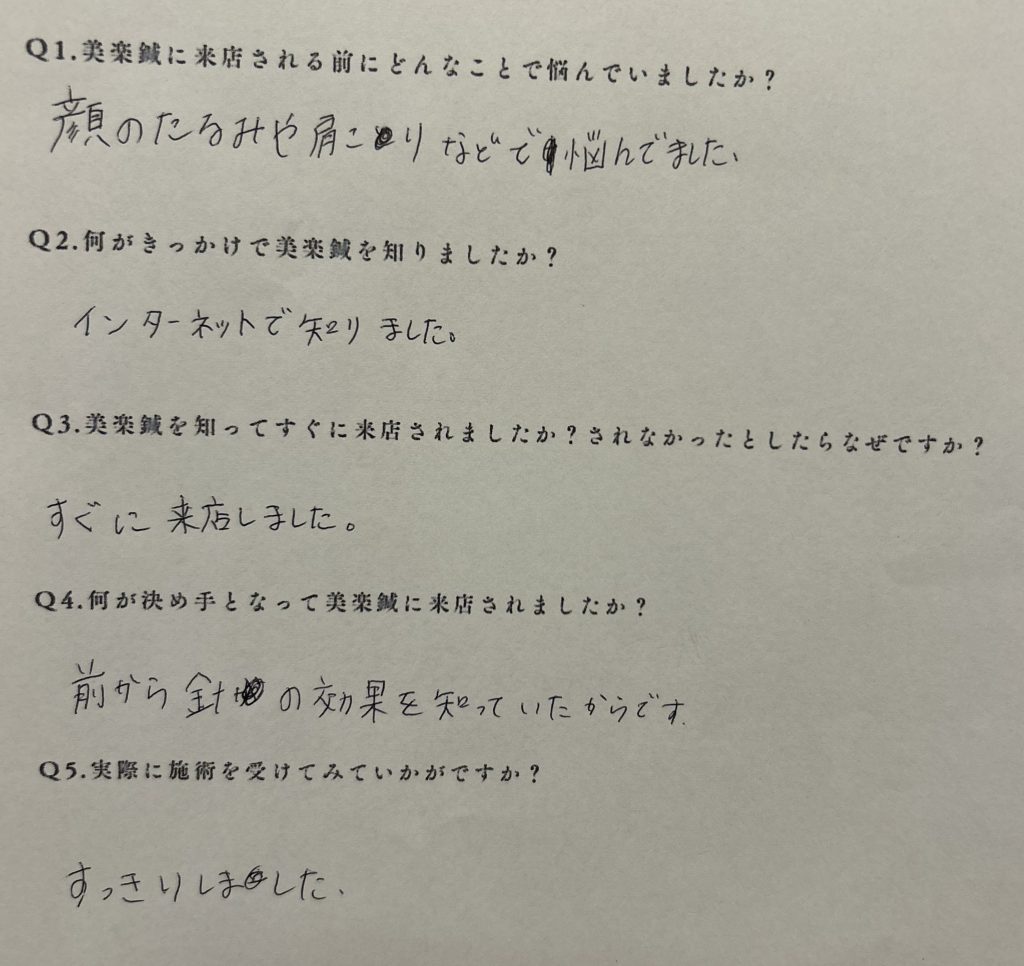 Q1.美楽鍼に来店される前にどんなことで悩んでいましたか？
顔のたるみや肩こりなどで悩んでました、
Q2.何がきっかけで美楽鍼を知りましたか？
インターネットで知りました。
Q3.美楽鍼を知ってすぐに来店されましたか？されなかったとしたらなぜですか？
すぐに来店しました。
Q4.何が決め手となって美楽鍼に来店されましたか？
前から針の効果を知っていたからです.
Q5.実際に施術を受けてみていかがですか？
すっきりしました、